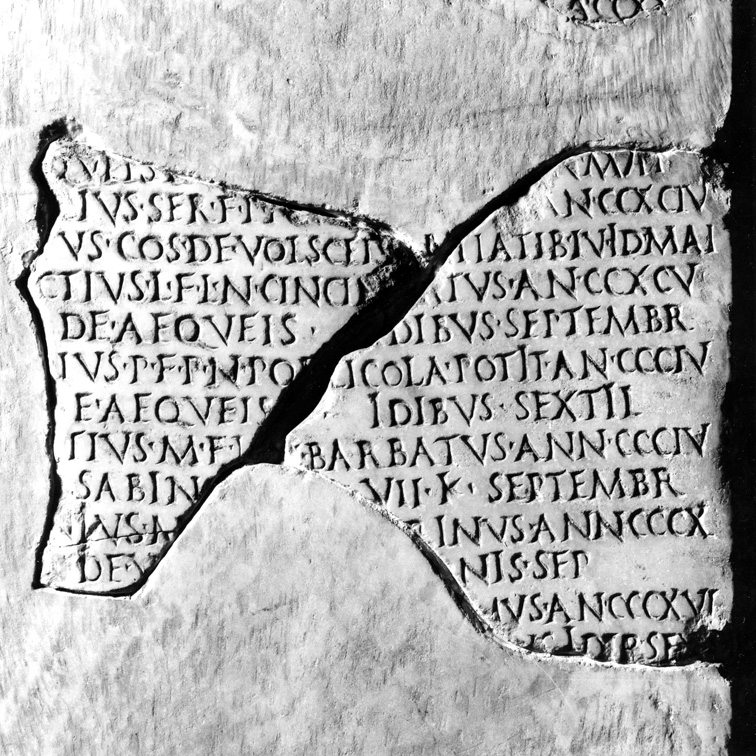 IVS·SER·F·
AN·CCXCIV
VS·COS·DE·VOLSCEI TIATIB·IV·IDMAI
CTIVS·L·F·L·N·CINCI ATVS·AN·CCXCV
DE·AEQVEIS· DIBVS·SEPTEMBR
IVS·P·F·P·N·POP LICOLA·POTIT·AN·CCCIV
E·AEQVEIS IDIBVS·SEXTIL
TIVS·M·F·L BARBATVS·ANN·CCCIV
SABIN VII·K·SEPTEMBR
IVS·A RINVS·ANNCCCX
DE·V NIS·SEP
IVS·ANCCCXVI